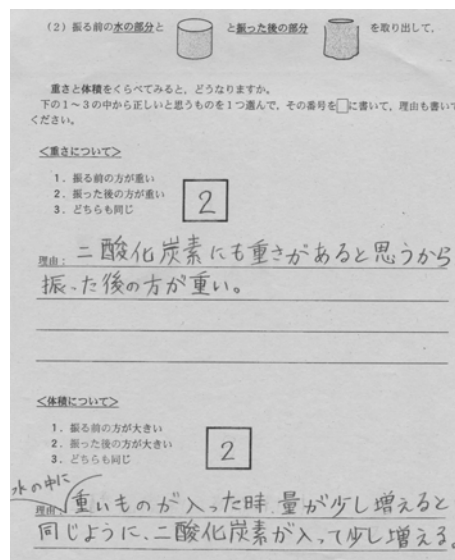 (2) 振る前の水の部分と と振った後の部分 を取り出して,
重さと体積をくらべてみると,どうなりますか。
下の1~3の中から正しいと思うものを1つ選んで,その番号を□に書いて,理由も書いて
ください。
<重さについて>
1. 振る前の方が重い
2. 振った後の方が重い
3. どちらも同じ
2
理由: 二酸化炭素にも重さがあると思うから
振った後の方が重い。
<体積について>
1. 振る前の方が大きい
2. 振った後の方が大きい
3. どちらも同じ
2
水の中に
理由: 重いものが入った時、量が少し増えると
同じように、二酸化炭素が入って少し増える。